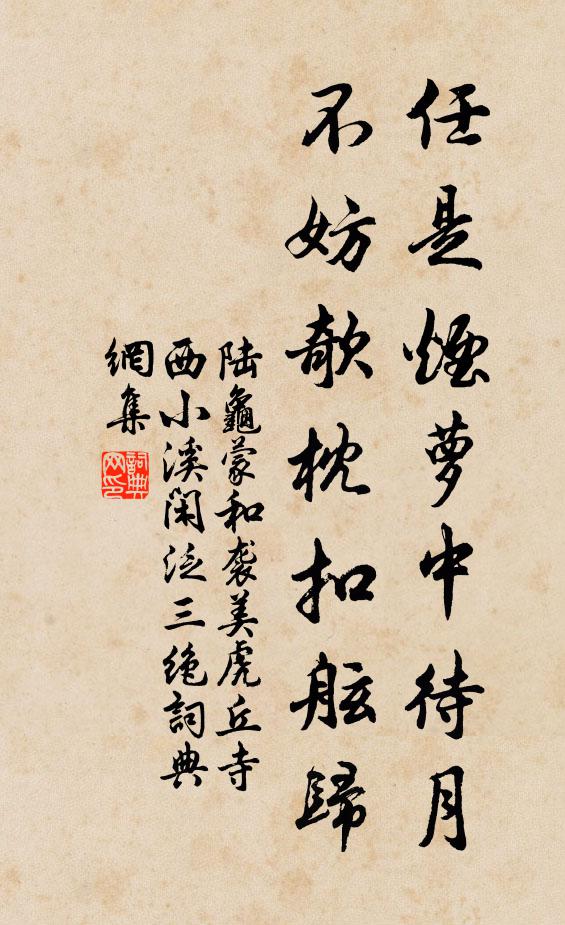 任是煙蘿中待月
不妨欹枕扣舷歸
陆龜蒙和袭美虎丘寺
西小溪閑泛三绝詞典
網集
詞典网印